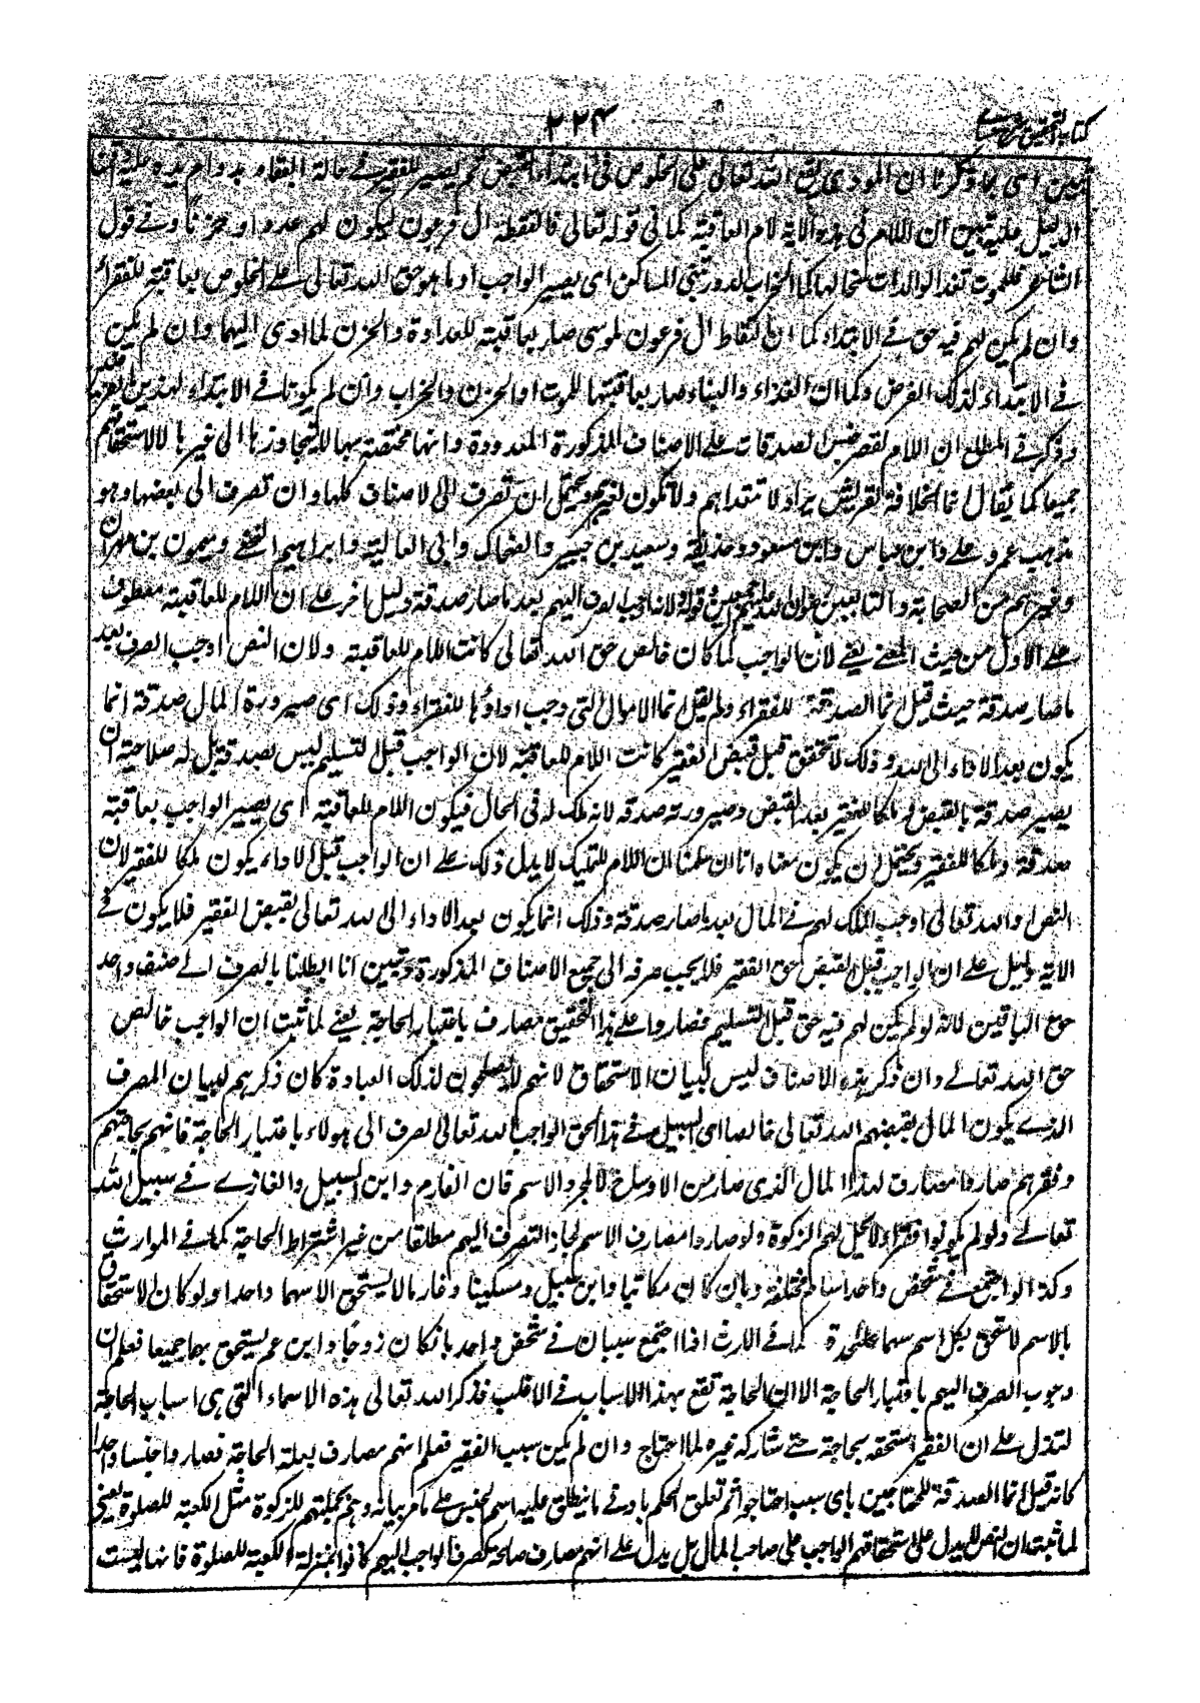 كتاب التحقيق شرح حسامي
٢٢٤
تبين اي بما ذكرنا ان المودى يقع لله تعالى على الخلوص في ابتداء القبض ثم يصير للفقير في حالة البقاء بدوام يده عليه
الدليل عليه تبين ان اللام في هذه الاية لام العاقبة كما في قوله تعالى فالتقطه ال فرعون ليكون لهم عدوا وحزنا وفي قول
الشاعر فللموت تغذ الوالدات سخالها كما لخراب الدور تبنى المساكن اى يصير الواجب او ما هو حق الله تعالى على الخلوص بعاقبة للفقراء
وان لم يكن لهم فيه حق في الابتداء كما ان التقاط ال فرعون لموسى صار بعاقبته للعداوة والحزن لما ادى اليهما وان لم يكن
في الابتداء لذلك الغرض وكما ان الغذاء والبناء صار بعاقبتها للموت او الحزن والخراب وان لم يكونا في الابتداء لهذين
وذكر في المطلع ان اللام لقصر جنس الصدقات على الاصناف المذكورة المعدودة وانها مختصة بها لا تتجاوزها الى غيرها لا لاستحقاقهم
جميعا كما يقال انما الخلافة لقريش يراد لا تتعداهم ولا تكون لغيرهم ويحتمل ان تصرف الى الاصناف كلها وان تصرف الى بعضها وهو
مذهب عمر وعلى وابن عباس وابن مسعود وحذيفة وسعيد بن جبير والضحاك وابى العالية وابراهيم النخعي وميمون بن مهران
وغيرهم من الصحابة والتابعين رضوان الله عليهم اجمعين قوله ولانه اوجب الصرف اليهم بعد ما صار صدقة دليل اخر على ان اللام للعاقبة معطوف
على الاول من حيث المعنى يعني لان الواجب لما كان خالص حق الله تعالى كانت اللام للعاقبة ولان النص اوجب الصرف بعد
ما صار صدقة حيث قيل انما الصدقة للفقراء ولم يقل انما الاموال التى وجب اداؤها للفقراء وذلك اى صيرورة المال صدقة انما
يكون بعد الاداء الى الله وذلك لا تحقق قبل قبض الفقير كانت اللام للعاقبة لان الواجب قبل التسليم ليس بصدقة بل له صلاحية ان
يصير صدقة بالقبض ملكا للفقير بعد القبض وصيرورته صدقة لانه ملك له فى الحال فيكون اللام للعاقبة اى يصير الواجب بعاقبته
صدقة وملكا للفقير ويحتمل ان يكون معناه انا ان سلمنا ان اللام للتمليك لا يدل ذلك على ان الواجب قبل الاداء يكون ملكا للفقير لان
النص او الله تعالى اوجب الملك لهم فى المال بعد ما صار صدقة وذلك انما يكون بعد الاداء الى الله تعالى بقبض الفقير فلا يكون في
الاية دليل على ان الواجب قبل القبض حق الفقير فلا يجب صرفه الى جميع الاصناف المذكورة وتبين انا ابطلنا بالصرف الى صنف واحد
حق الباقين لانه لو لم يكن لهم فيه حق قبل التسليم فصاروا على هذا التحقيق مصارف باعتبار الحاجة يعني لما ثبت ان الواجب خالص
حق الله تعالى وان ذكر هذه الاصناف ليس لبيان الاستحقاق لانهم لا يصلحون لذلك العبادة كان ذكرهم لبيان المصرف
الذى يكون المال بقبضهم لله تعالى خالصا اى السبيل في هذا الحق الواجب لله تعالى الصرف الى هولاء باعتبار الحاجة فانهم بحاجتهم
وفقرهم صاروا مصارف لهذا المال الذى صار من الاوساخ لا لمجرد الاسم فان الغارم وابن السبيل والغازى في سبيل الله
تعالى ولو لم يكونوا فقراء لا تحل لهم الزكوة ولو صاروا مصارف الاسم لجاز التصرف اليهم مطلقا من غير اشتراط الحاجة كما في المواريث
وكذا لو اجتمع في شخص واحد اسام مختلفة وبان كان مكاتبا وابن سبيل ومسكينا وغارما لا يستحق الا سهما واحدا ولو كان الاستحقاق
بالاسم لاستحق بكل اسم سهما على حدة كما في الارث اذا اجتمع سببان في شخص واحد بان كان زوجا وابن عم يستحق بهما جميعا فعلم ان
وجوب الصرف اليهم باعتبار الحاجة الا ان الحاجة تقع بهذه الاسباب في الاغلب فذكر الله تعالى هذه الاسماء التى هى اسباب الحاجة
لتدل على ان الفقير استحقه بحاجته حتى شاركه غيره لما احتاج وان لم يكن سبب الفقير فعلم انهم مصارف بعلة الحاجة فصاروا جنسا واحدا
كانه قيل انما الصدقة للمحتاجين باى سبب احتاجوا ثم تعلق الحكم بادنى ما ينطلق عليه اسم الجنس على ما مر بيانه وهم بجملتهم للزكوة مثل الكعبة للصلوة يعنى
لما ثبت ان النص لا يدل على استحقاقهم الواجب على صاحب المال بل يدل على انهم مصارف صالحة لصرف الواجب اليهم كانوا بمنزلة الكعبة للصلوة فانها ليست